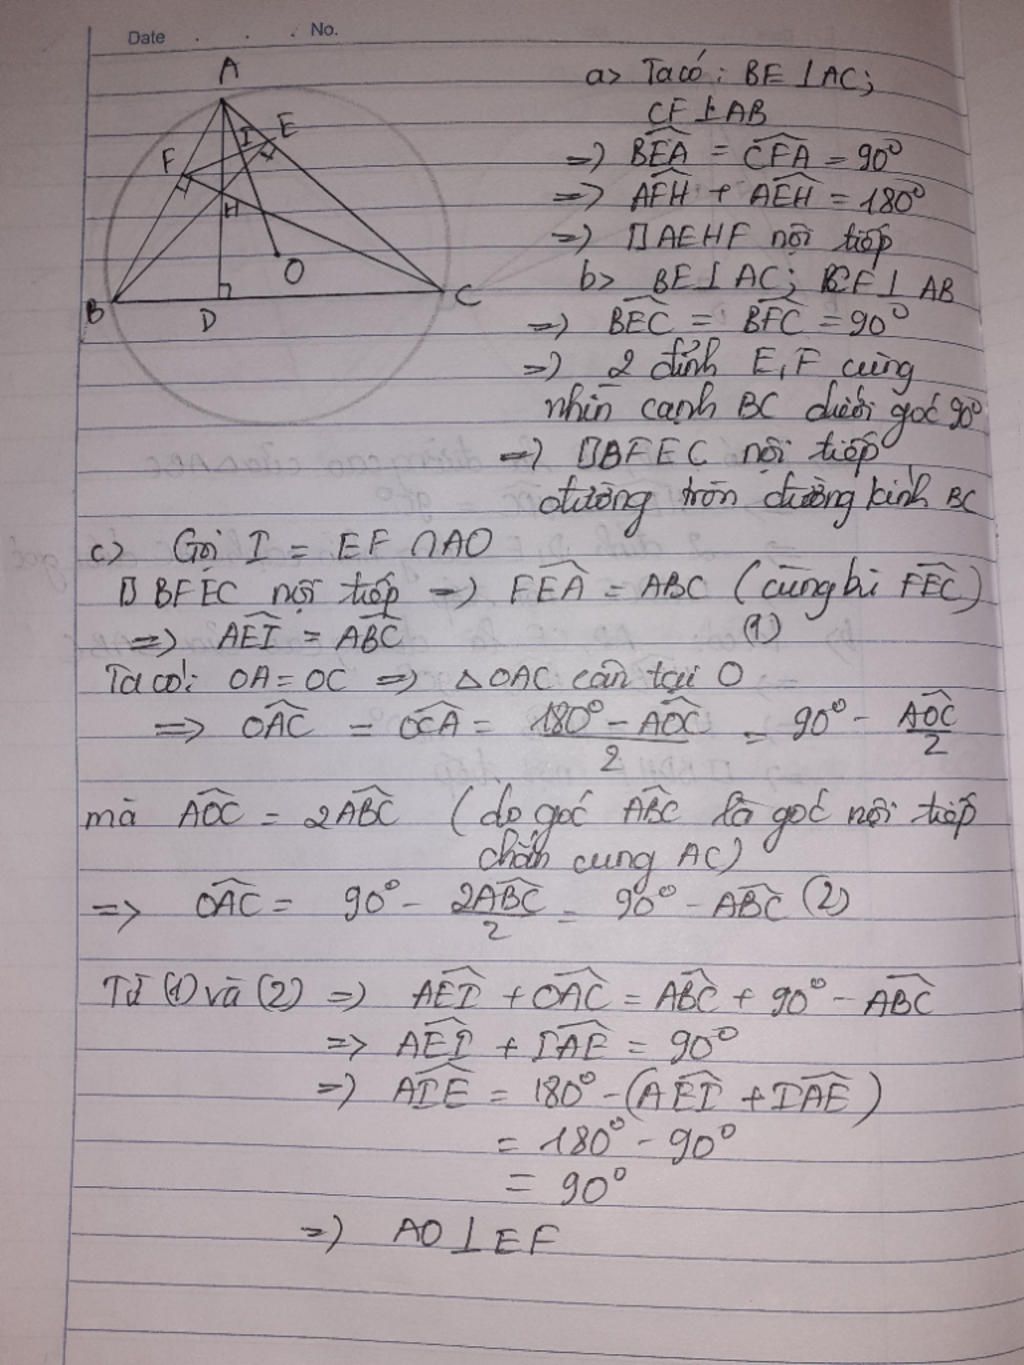 Date . . . No.
A
I E
F
H
O
B D C
a> Ta có: BE ⊥ AC;
CF ⊥ AB
=> \widehat{BEA} = \widehat{CFA} = 90°
=> \widehat{AFH} + \widehat{AEH} = 180°
=> □AEHF nội tiếp
b> BE ⊥ AC; CF ⊥ AB
=> \widehat{BEC} = \widehat{BFC} = 90°
=> 2 đỉnh E, F cùng
nhìn cạnh BC dưới góc 90°
=> □BFEC nội tiếp
đường tròn đường kính BC
c> Gọi I = EF ∩ AO
□BFEC nội tiếp => \widehat{FEA} = ABC (cùng bù \widehat{FEC})
=> \widehat{AEI} = \widehat{ABC} (1)
Ta có: OA = OC => △OAC cân tại O
=> \widehat{OAC} = \widehat{OCA} = \frac{180° - \widehat{AOC}}{2} = 90° - \frac{\widehat{AOC}}{2}
mà \widehat{AOC} = 2\widehat{ABC} (do góc \widehat{ABC} là góc nội tiếp
chắn cung AC)
=> \widehat{OAC} = 90° - \frac{2\widehat{ABC}}{2} = 90° - \widehat{ABC} (2)
Từ (1) và (2) => \widehat{AEI} + \widehat{OAC} = \widehat{ABC} + 90° - \widehat{ABC}
=> \widehat{AEI} + \widehat{IAE} = 90°
=> \widehat{AIE} = 180° - (\widehat{AEI} + \widehat{IAE})
= 180° - 90°
= 90°
=> AO ⊥ EF